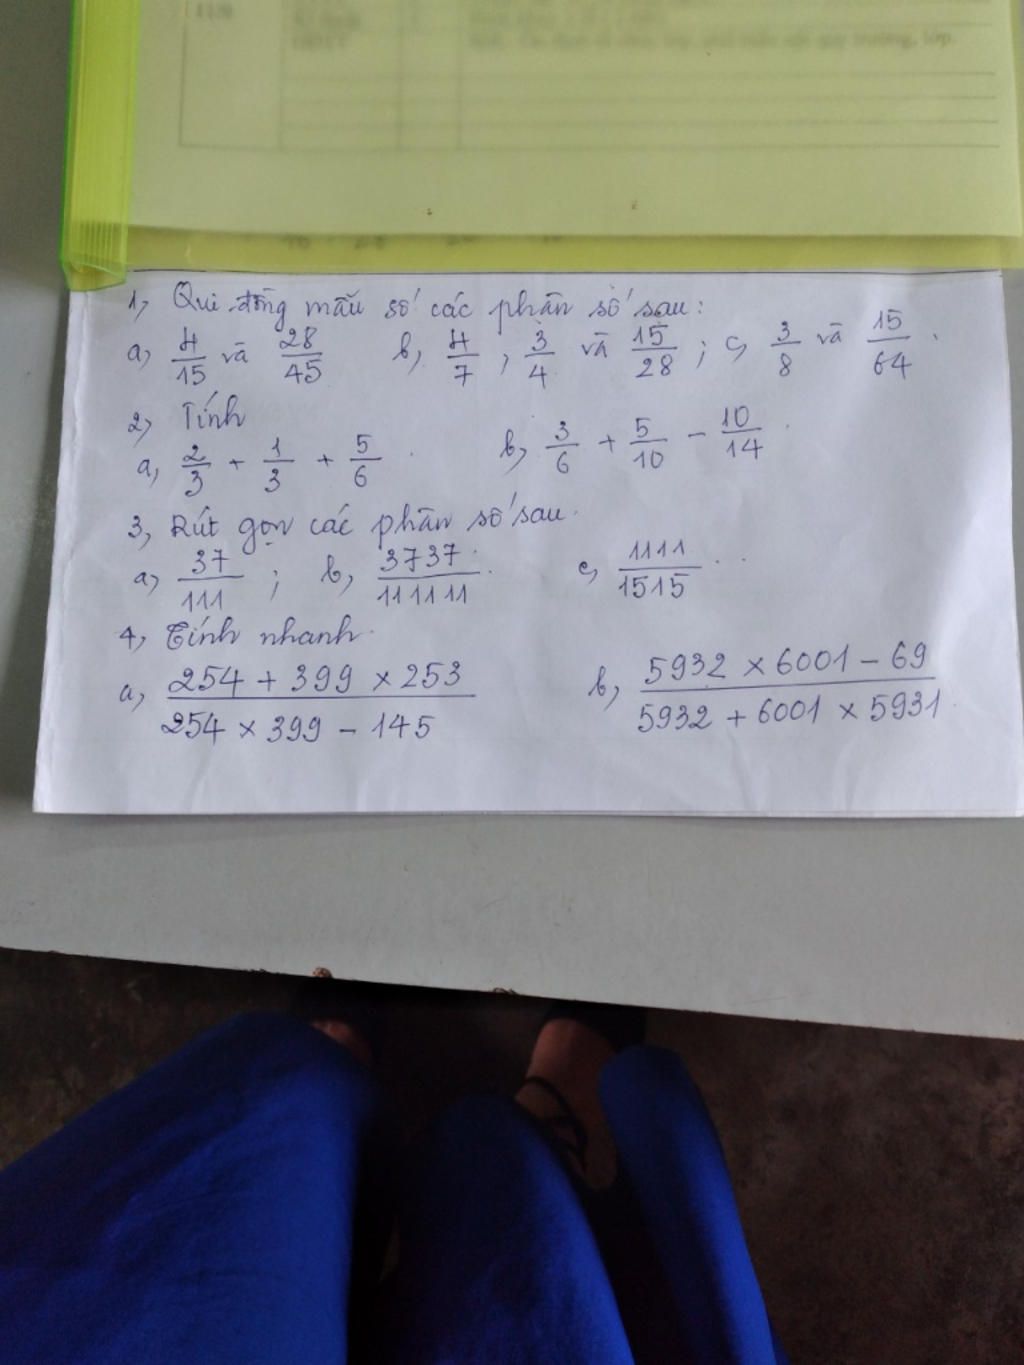 1, Qui đồng mẫu số các phân số sau:
a, 4/15 và 28/45 b, 4/7 , 3/4 và 15/28 ; c, 3/8 và 15/64 .
2, Tính
a, 2/3 + 1/3 + 5/6 . b, 3/6 + 5/10 - 10/14 .
3, Rút gọn các phân số sau.
a, 37/111 ; b, 3737/111111 . c, 1111/1515 . .
4, Tính nhanh.
a, (254 + 399 × 253)/(254 × 399 - 145) b, (5932 × 6001 - 69)/(5932 + 6001 × 5931) .